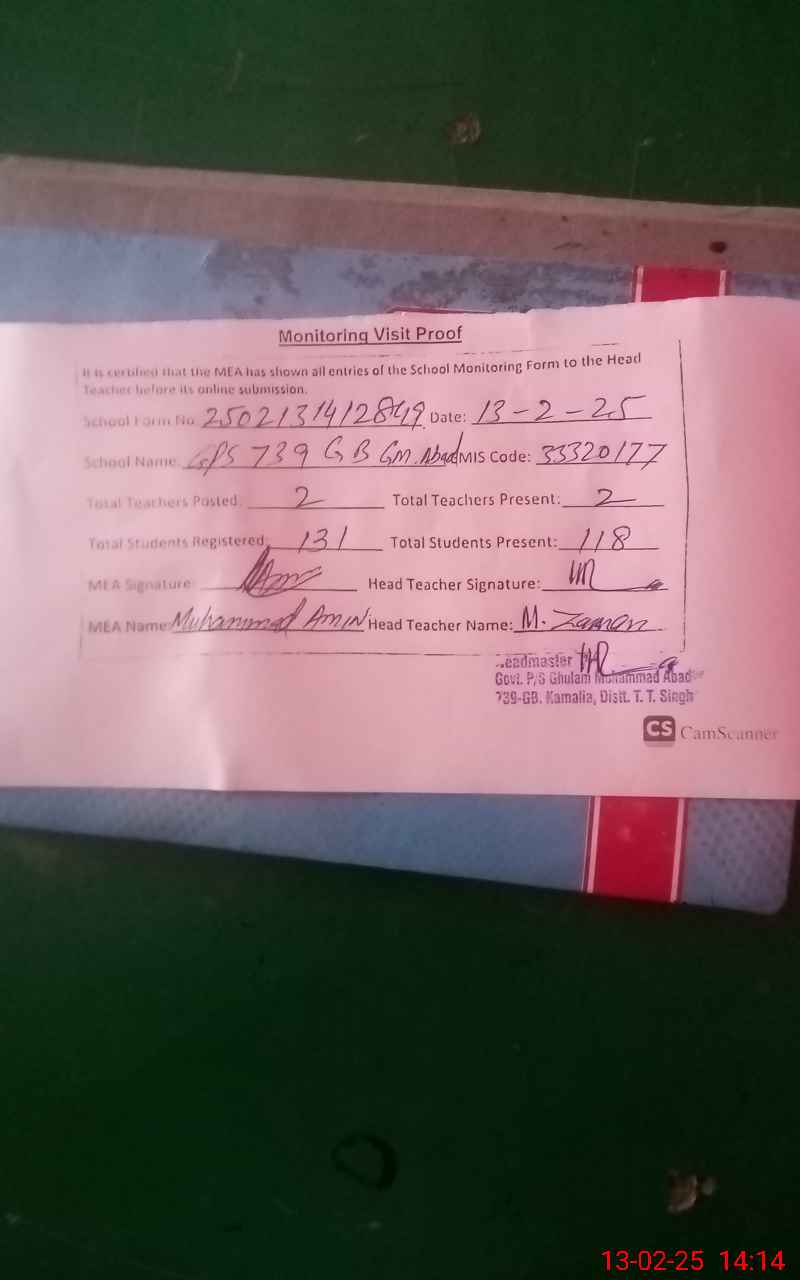 Monitoring Visit Proof
It is certified that the MEA has shown all entries of the School Monitoring Form to the Head
Teacher before its online submission.
School Form No 2502131412849 Date: 13-2-25
School Name: GPS 739 GB GM.Abad MIS Code: 33320177
Total Teachers Posted: 2 Total Teachers Present: 2
Total Students Registered: 131 Total Students Present: 118
MEA Signature: Head Teacher Signature:
MEA Name: Muhammad AMIN Head Teacher Name: M. Zaman
Headmaster
Govt. P/S Ghulam Muhammad Abad
739-GB. Kamalia, Distt. T. T. Singh
CS CamScanner
13-02-25 14:14